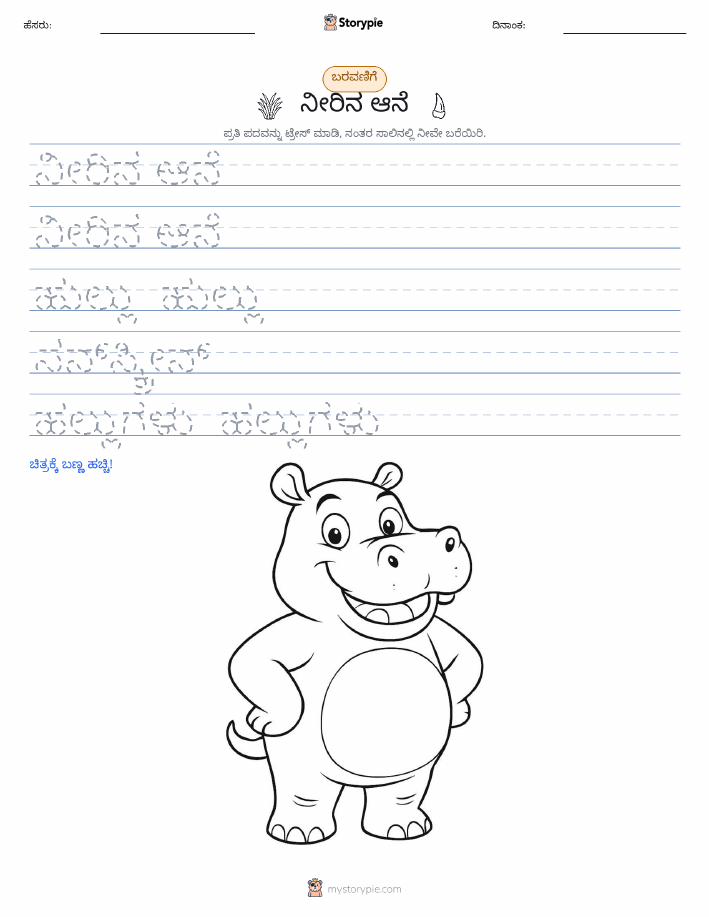 ಹೆಸರು: Storypie ದಿನಾಂಕ:
ಬರವಣಿಗೆ
ನೀರಿನ ಆನೆ
ಪ್ರತಿ ಪದವನ್ನು ಟ್ರೇಸ್ ಮಾಡಿ, ನಂತರ ಸಾಲಿನಲ್ಲಿ ನೀವೇ ಬರೆಯಿರಿ.
ನೀರಿನ ಆನೆ
ನೀರಿನ ಆನೆ
ಹುಲ್ಲು ಹುಲ್ಲು
ಸನ್‌ಸ್ಕ್ರೀನ್
ಹಲ್ಲುಗಳು ಹಲ್ಲುಗಳು
ಚಿತ್ರಕ್ಕೆ ಬಣ್ಣ ಹಚ್ಚಿ!
mystorypie.com